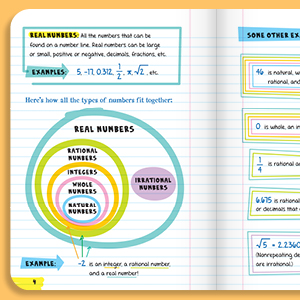 REAL NUMBERS: All the numbers that can be
found on a number line. Real numbers can be large
or small, positive or negative, decimals, fractions, etc.
EXAMPLES: 5, -17, 0.312, 1/2, π, √2, etc.
Here's how all the types of numbers fit together:
REAL NUMBERS
RATIONAL
NUMBERS
INTEGERS
WHOLE
NUMBERS
NATURAL
NUMBERS
IRRATIONAL
NUMBERS
EXAMPLE: -2 is an integer, a rational number,
and a real number!
4
SOME OTHER EX
46 is natural, w
rational, and
0 is whole, an in
1/4 is rational a
6.675 is rational
or decimals that
√5 = 2.2360
(Nonrepeating de
are irrational.)